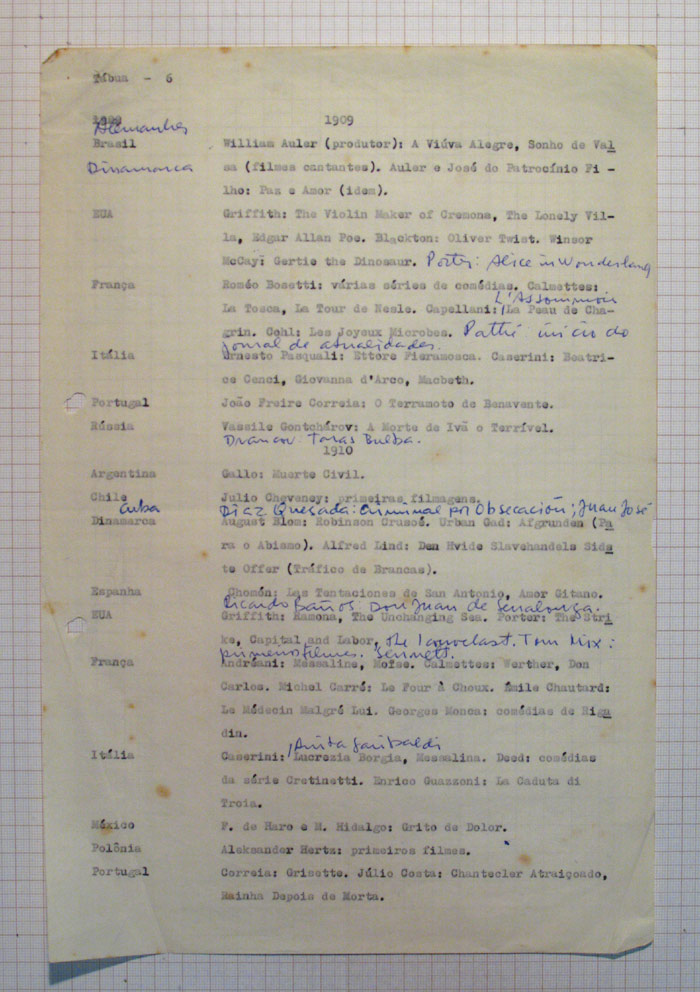 Tábua - 6
1909
Alemanha
Brasil William Auler (produtor): A Viúva Alegre, Sonho de Val
Dinamarca sa (filmes cantantes). Auler e José do Patrocínio Fi -
lho: Paz e Amor (idem).
EUA Griffith: The Violin Maker of Cremona, The Lonely Vil-
la, Edgar Allan Poe. Blackton: Oliver Twist. Winsor
McCay: Gertie the Dinosaur. Porter: Alice in Wonderland
França Roméo Bosetti: várias séries de comédias. Calmettes:
L'Assommoir
La Tosca, La Tour de Nesle. Capellani: /La Peau de Cha-
grin. Cohl: Les Joyeux Microbes. Pathé: início do
jornal de atualidades.
Itália Ernesto Pasquali: Ettore Fieramosca. Caserini: Beatri-
ce Cenci, Giovanna d'Arco, Macbeth.
Portugal João Freire Correia: O Terramoto de Benavente.
Rússia Vassile Gontchárov: A Morte de Ivã o Terrível.
Drancov: Taras Bulba.
1910
Argentina Gallo: Muerte Civil.
Chile Julio Cheveney: primeiras filmagens.
Cuba Díaz Quesada: Criminal por Obsecación; Juan José
Dinamarca August Blom: Robinson Crusoé. Urban Gad: Afgrunden (Pa
ra o Abismo). Alfred Lind: Den Hvide Slavehandels Sids
te Offer (Tráfico de Brancas).
Espanha Chomón: Las Tentaciones de San Antonio, Amor Gitano.
Ricardo Baños: Don Juan de Serralonga.
EUA Griffith: Ramona, The Unchanging Sea. Porter: The Stri
ke, Capital and Labor, The Iconoclast. Tom Mix:
primeiros filmes. Sennett.
França Andréani: Messaline, Moïse. Calmettes: Werther, Don
Carlos. Michel Carré: Le Four à Choux. Émile Chautard:
Le Médecin Malgré Lui. Georges Monca: comédias de Riga
din.
, Anita Garibaldi
Itália Caserini: Lucrezia Borgia, Messalina. Deed: comédias
da série Cretinetti. Enrico Guazzoni: La Caduta di
Troia.
México F. de Haro e M. Hidalgo: Grito de Dolor.
Polônia Aleksander Hertz: primeiros filmes.
Portugal Correia: Grisette. Júlio Costa: Chantecler Atraiçoado,
Rainha Depois de Morta.